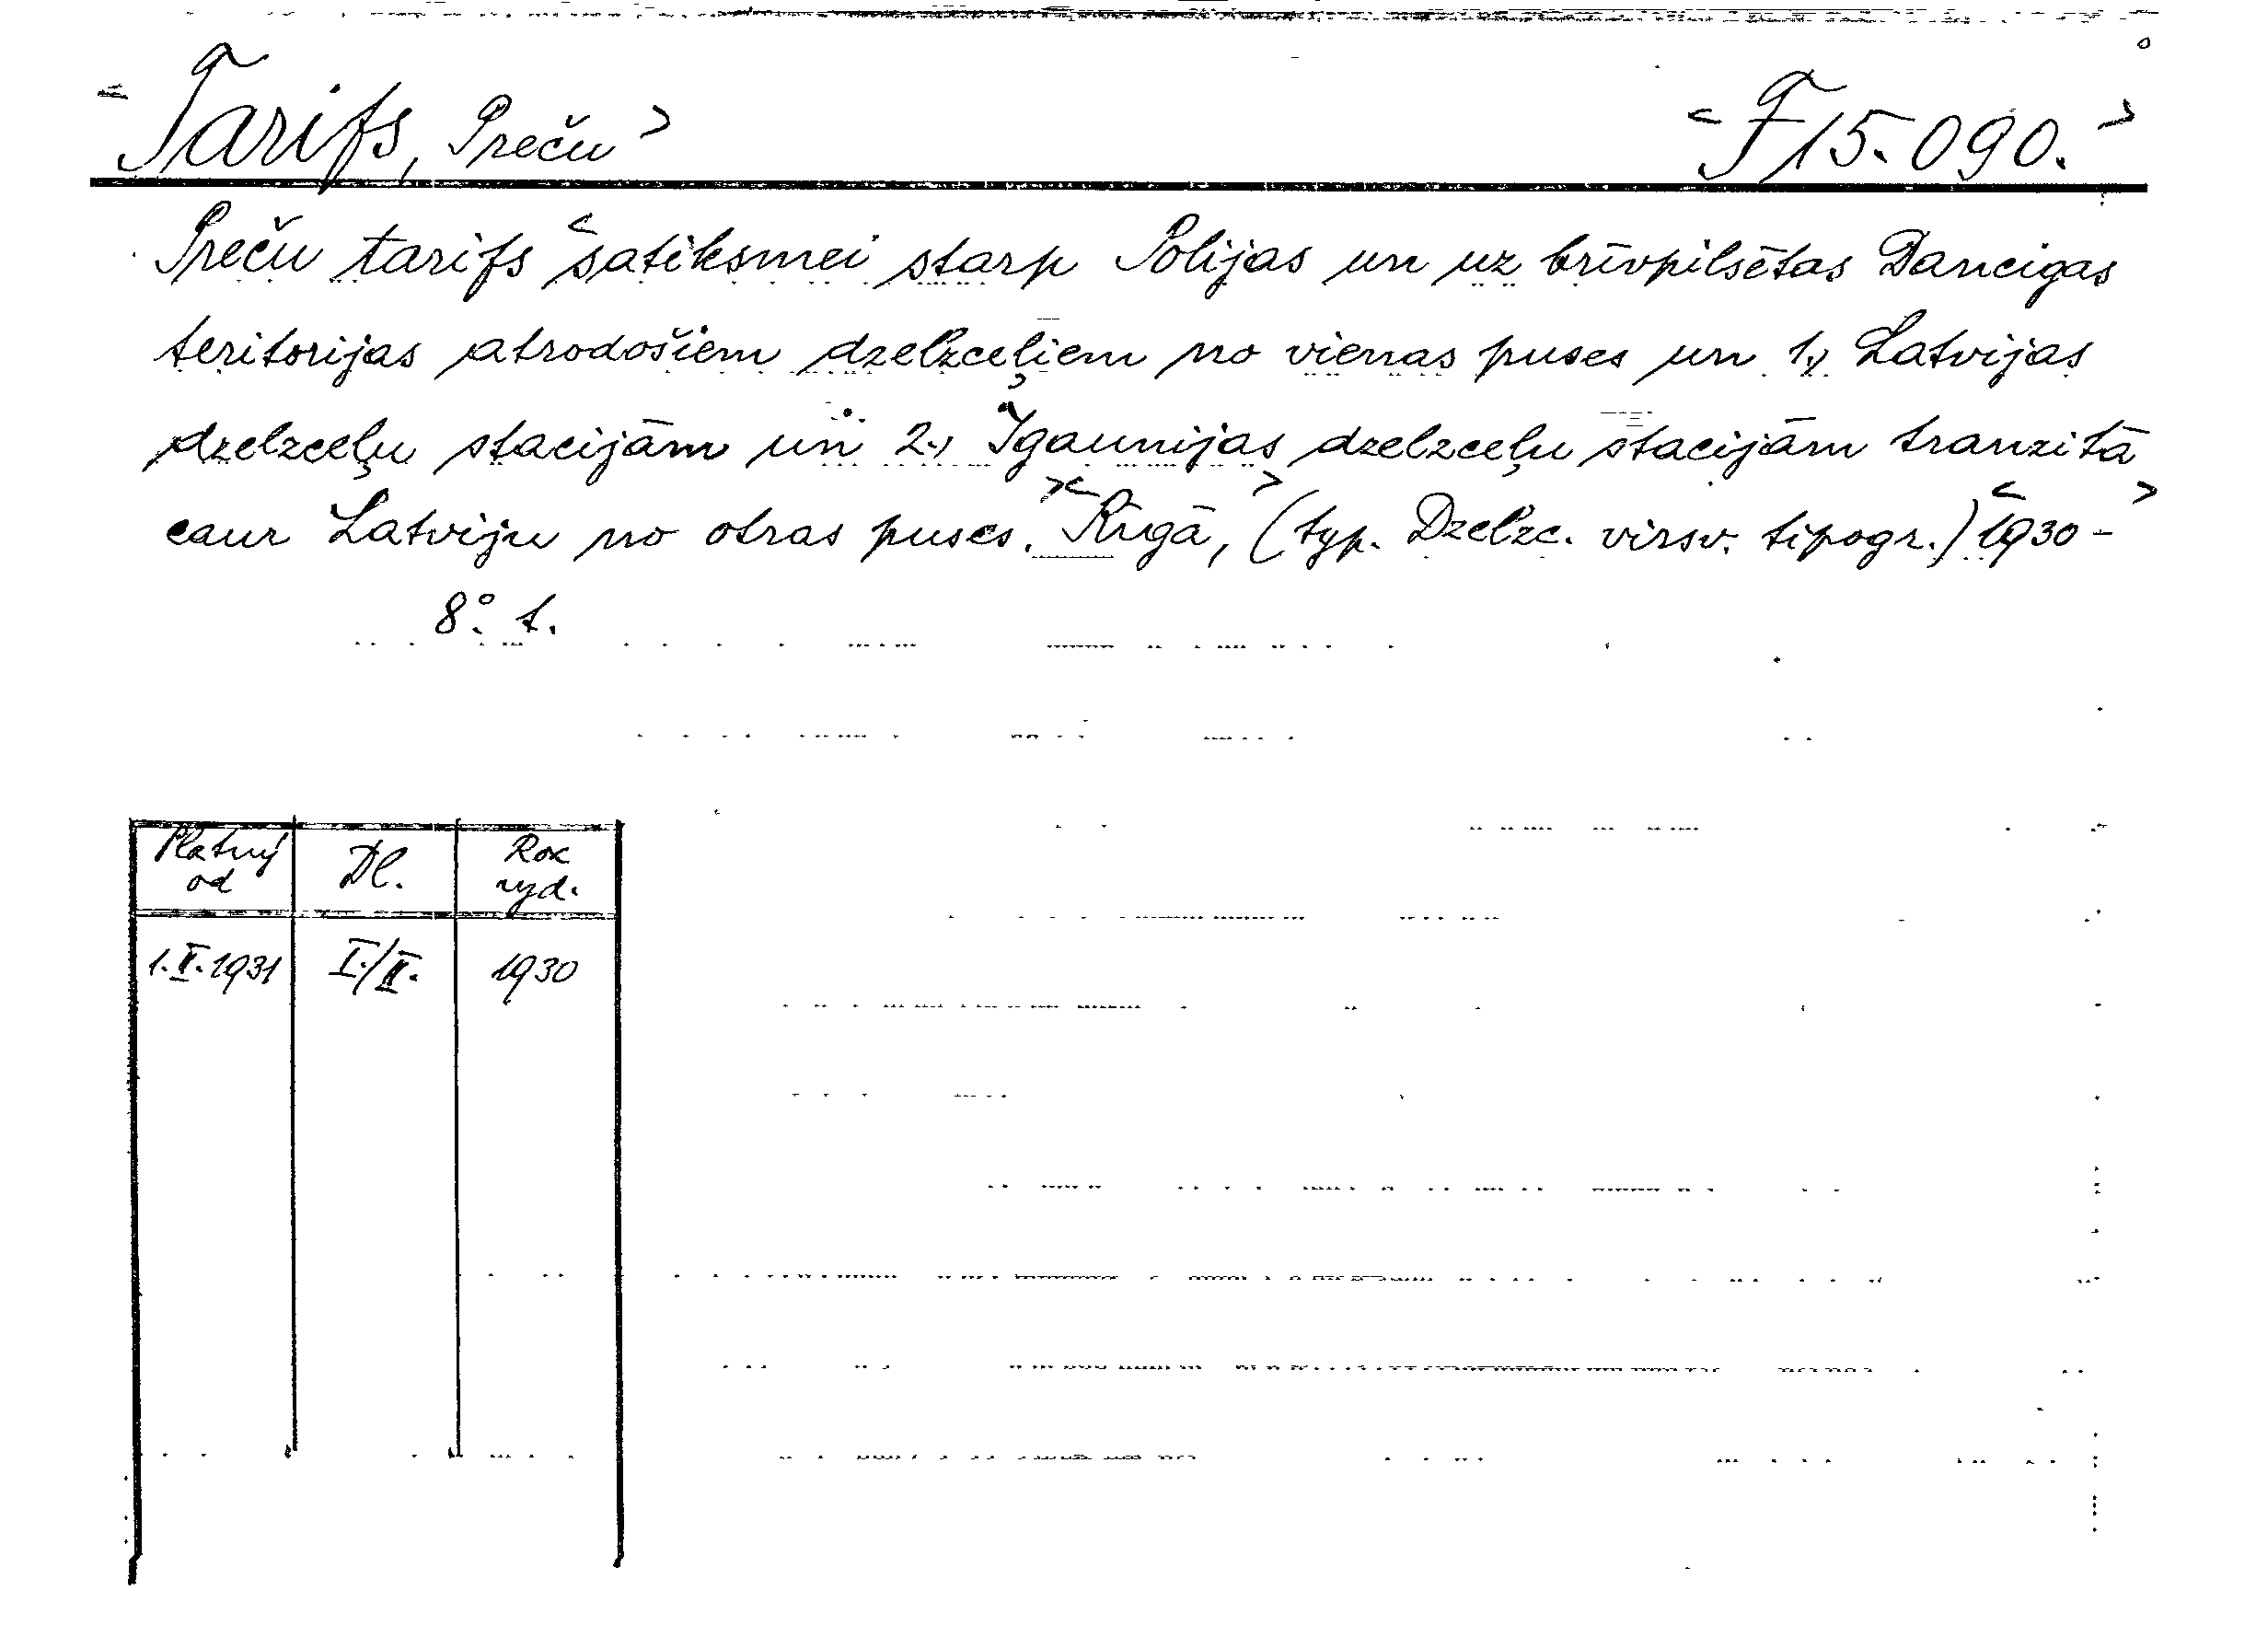 Tarifs, Preču
F 15.090.
Preču tarifs satiksmei starp Polijas un uz brīvpilsētas Dancigas
teritorijas atrodošiem dzelzceļiem no vienas puses un 1.) Latvijas
dzelzceļu stacijām un 2.) Igaunijas dzelzceļu stacijām tranzitā
caur Latviju no otras puses. Rīgā, (typ. Dzelzc. virsv. tipogr.) 1930 -
8°. t.
Platný od | Dl. | Rok vyd.
1.II.1931 | I./II. | 1930